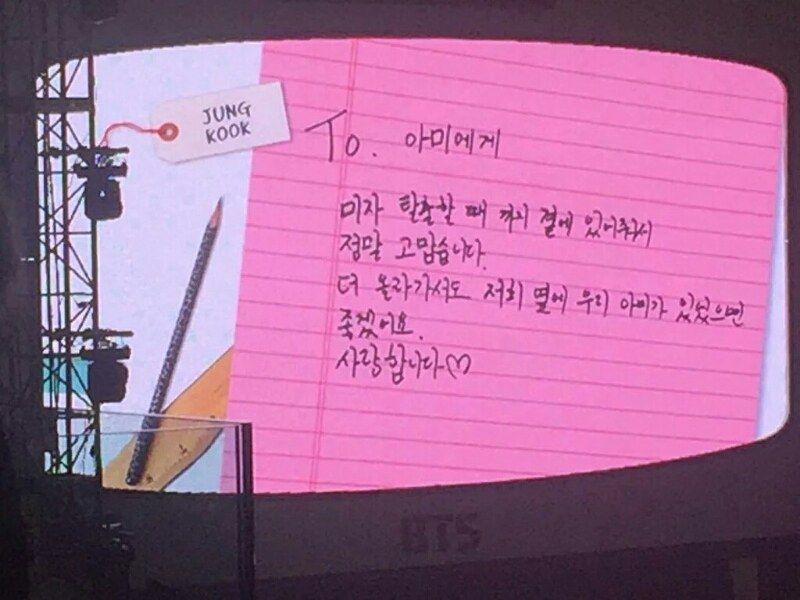 JUNG
KOOK
To. 아미에게
미자 탈출할 때 까지 곁에 있어줘서
정말 고맙습니다.
더 올라가서도 저희 옆에 우리 아미가 있었으면
좋겠어요.
사랑합니다♡
BTS